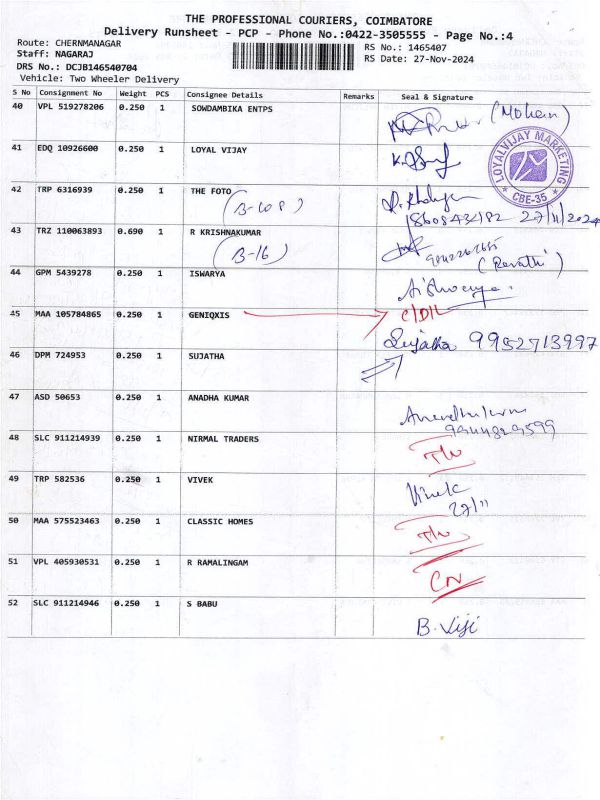 THE PROFESSIONAL COURIERS, COIMBATORE
Delivery Runsheet - PCP - Phone No.:0422-3505555 - Page No.:4
Route: CHERNMANAGAR
RS No.: 1465407
Staff: NAGARAJ
RS Date: 27-Nov-2024
DRS No.: DCJB146540704
Vehicle: Two Wheeler Delivery
S No Consignment No Weight PCS Consignee Details Remarks Seal & Signature
40 VPL 519278206 0.250 1 SOWDAMBIKA ENTPS
41 EDQ 10926600 0.250 1 LOYAL VIJAY
LOYALVIJAY MARKETING
CBE-35
42 TRP 6316939 0.250 1 THE FOTO
(B-108)
27/11/2024
43 TRZ 110063893 0.690 1 R KRISHNAKUMAR
(B-16)
(Revathi)
44 GPM 5439278 0.250 1 ISWARYA
45 MAA 105784865 0.250 1 GENIQXIS
C/D/L
46 DPM 724953 0.250 1 SUJATHA
Sujatha 9952713997
47 ASD 50653 0.250 1 ANADHA KUMAR
48 SLC 911214939 0.250 1 NIRMAL TRADERS
49 TRP 582536 0.250 1 VIVEK
Vivek
27/11
50 MAA 575523463 0.250 1 CLASSIC HOMES
51 VPL 405930531 0.250 1 R RAMALINGAM
CN
52 SLC 911214946 0.250 1 S BABU
B. Viji